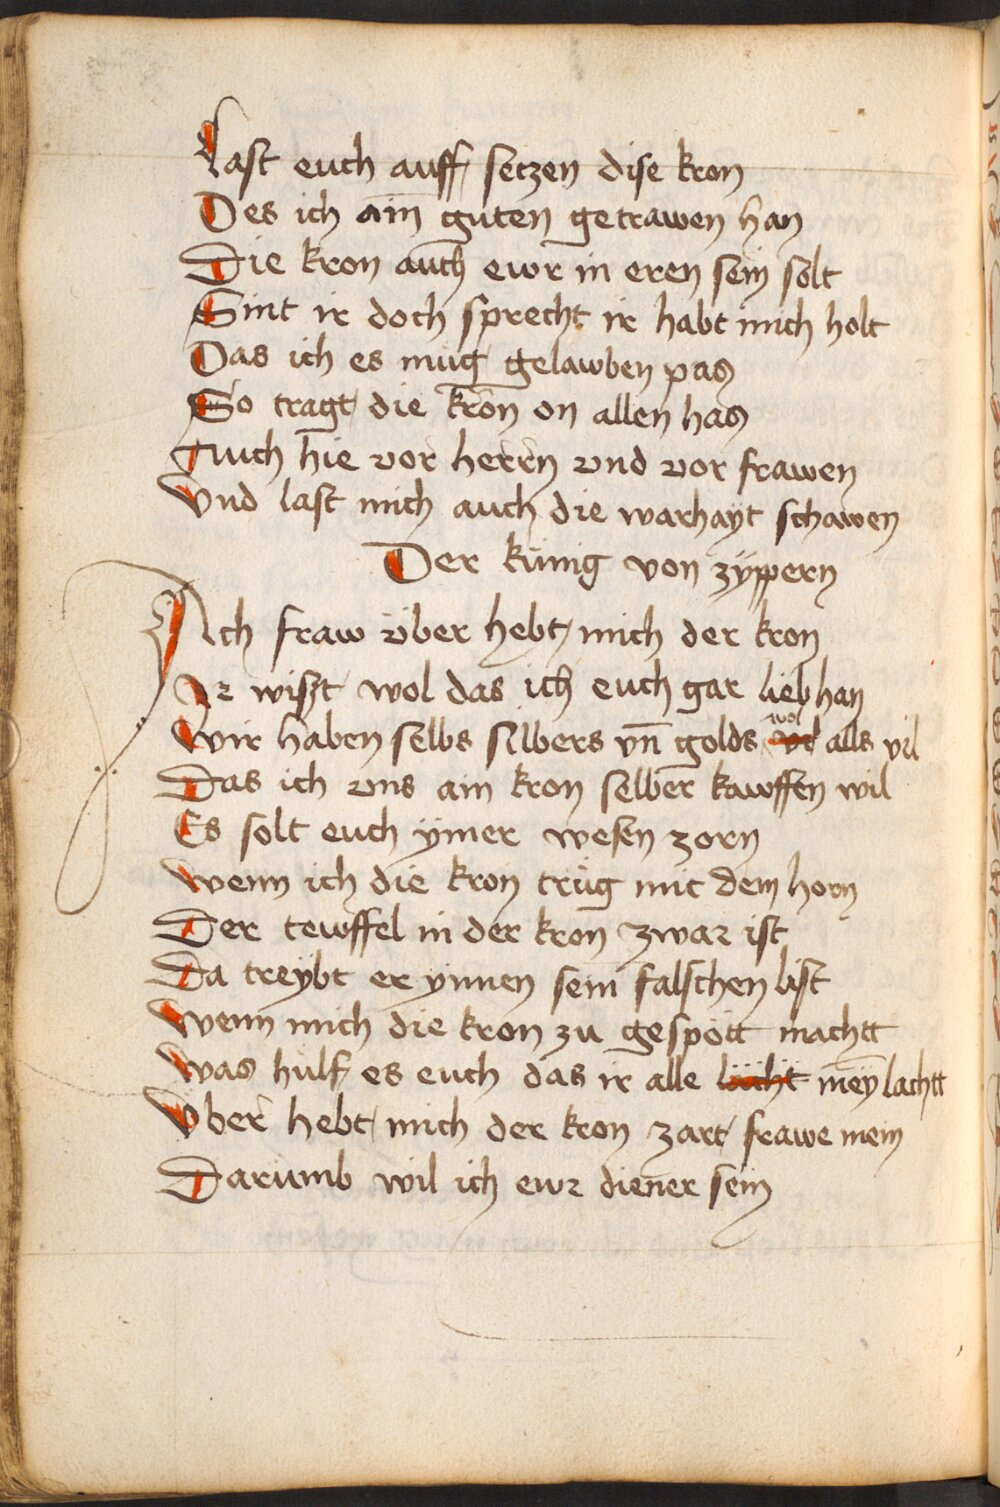 Last euch auff setzen dise kron
Des ich ain guten getrawen han
Die kron auch ewr in eren sein solt
Sint ir doch sprecht ir habt mich holt
Das ich es mug gelawben pas
So tragt die kron on allen has
Auch hie vor herrn vnd vor frawen
Vnd last mich auch die warhayt schawen
Der künig von zyppern
Ach fraw über hebt mich der kron
Ir wißt wol das ich euch gar lieb han
Wir haben selbs silbers vn̄ golds wol alls vil
Das ich vns ain kron selber kawffen wil
Es solt euch ymer wesen zorn
Wenn ich die kron trüg mit dem horn
Der tewffel in der kron zwar ist
Da treybt er ynnen sein falschen list
Wenn mich die kron zu gespött machtt
Was hulf es euch das ir alle lücht mein lachtt
Vber hebt mich der kron zart frawe mein
Darumb wil ich ewr diener sein